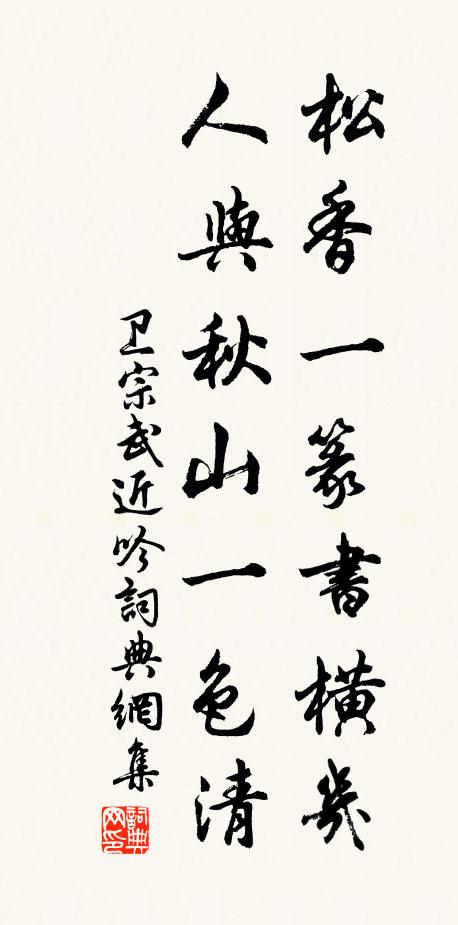 松香一篆書橫幾
人與秋山一色清
卫宗武近吟詞典網集
詞典网印